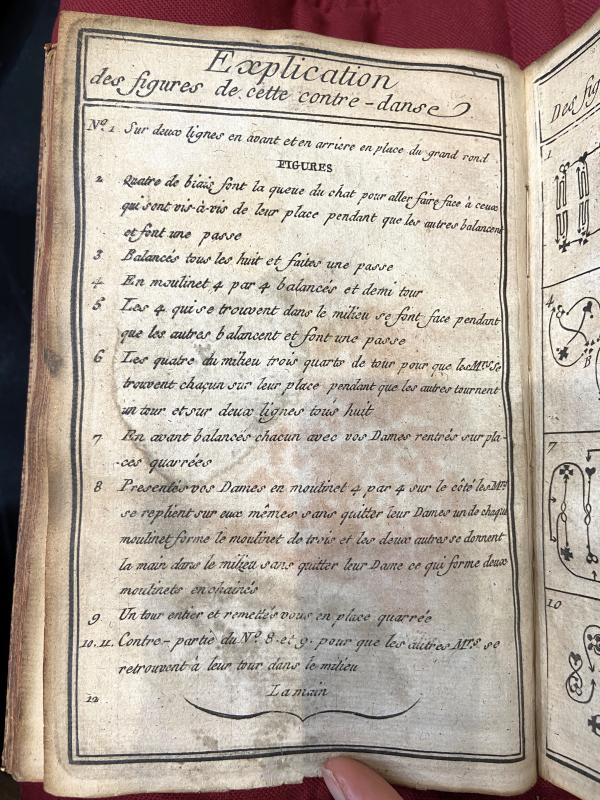 Explication
des figures de cette contre-danse
Nº. 1 Sur deux lignes en avant et en arriere en place du grand rond
FIGURES
2 Quatre de biais font la queue du chat pour aller faire face à ceux
qui sont vis-à-vis de leur place pendant que les autres balancent
et font une passe
3 Balancés tous les huit et faites une passe
4 En moulinet 4 par 4 balancés et demi tour
5 Les 4 qui se trouvent dans le milieu se font face pendant
que les autres balancent et font une passe
6 Les quatre du milieu trois quarts de tour pour que les Mrs. se
trouvent chaçun sur leur place pendant que les autres tournent
un tour et sur deux lignes tous huit
7 En avant balancés chacun avec vos Dames rentrés sur pla-
-ces quarrées
8 Presentés vos Dames en moulinet 4 par 4 sur le côté les Mrs
se replient sur eux mêmes sans quitter leur Dames un de chaque
moulinet forme le moulinet de trois et les deux autres se donnent
la main dans le milieu sans quitter leur Dame ce qui forme deux
moulinets enchainés
9 Un tour entier et remettés vous en place quarrée
10. 11. Contre-partie du Nº. 8 et 9. pour que les autres Mrs. se
retrouvent à leur tour dans le milieu
12 La main
Des fig
1
4
B
7
10